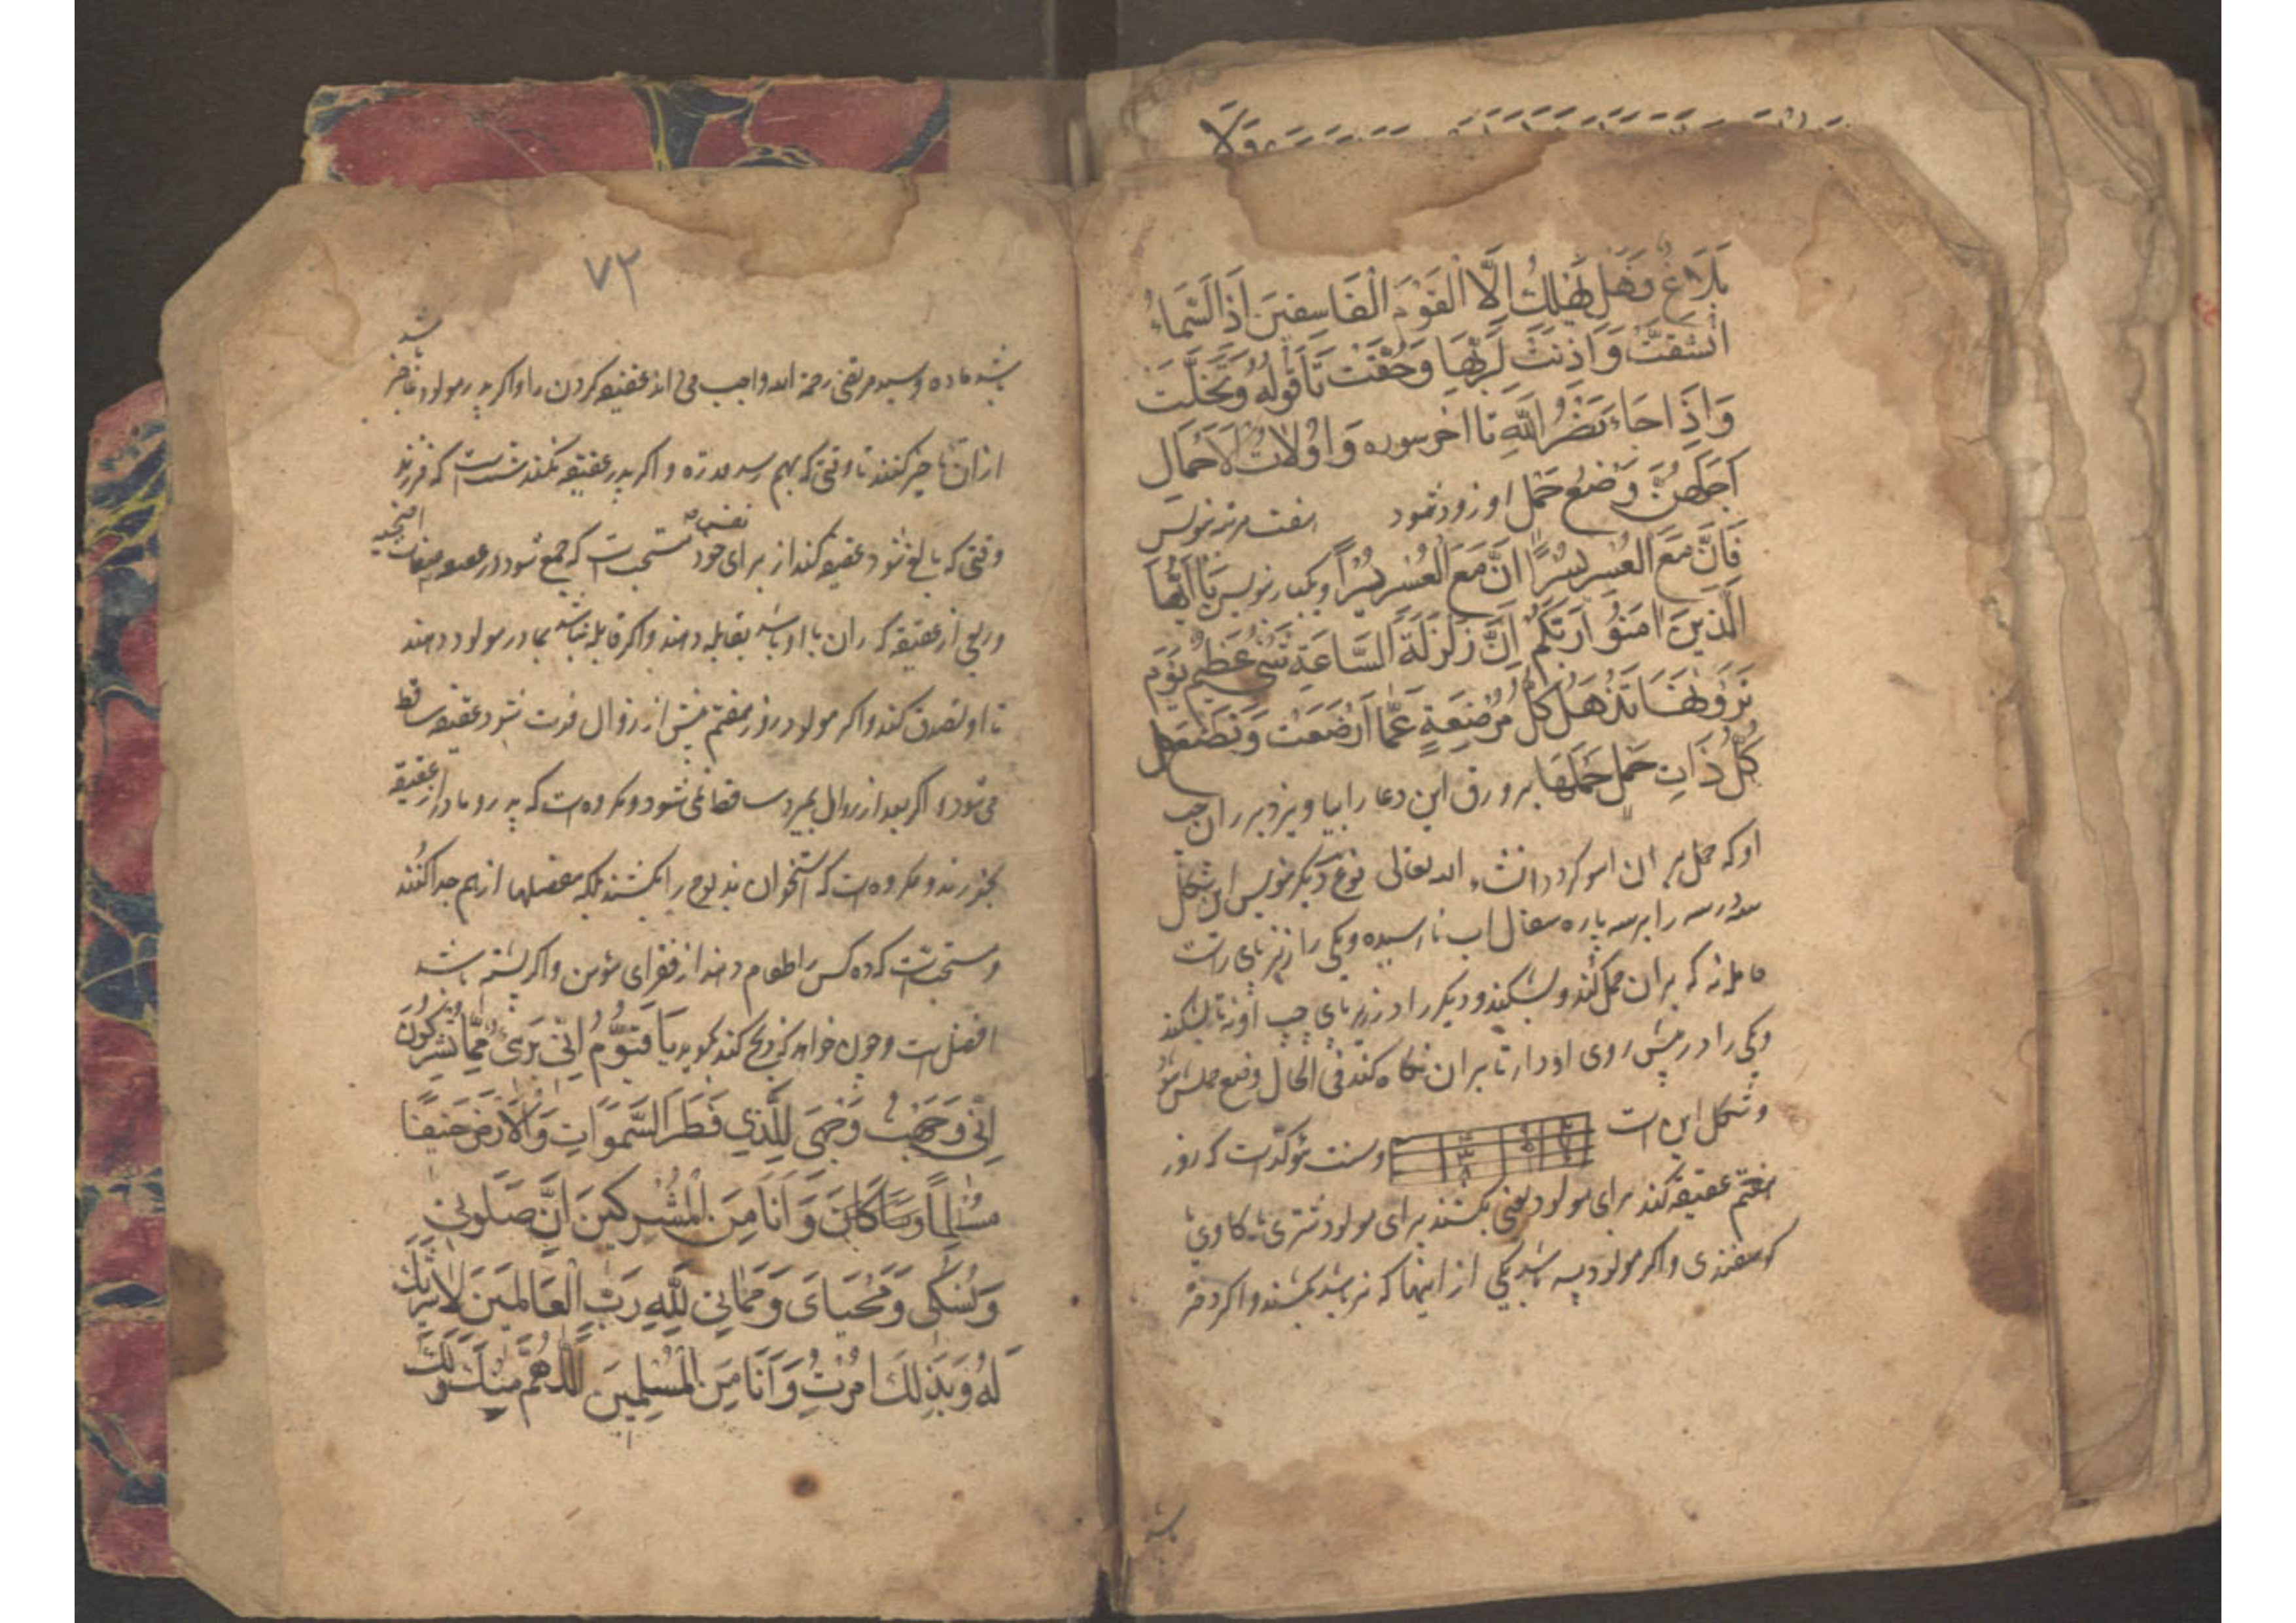 بَلَاغٌ وَهَلْ يُهْلَكُ اِلَّا الْقَوْمُ الْفَاسِقينَ اِذَا السَّمَاءُ
انْشَقَّتْ وَاَذِنَتْ لِرَبِّهَا وَحُقَّتْ تا قوله وَتَخَلَّتْ
وَاِذَا جَاءَ نَصْرُ اللّهِ تا اخر سوره وَاُولَاتُ الْاَحْمَالِ
اَجَلُهُنَّ وَضْع حَمل او زود شود هفت مرتبه نویس
فَاِنَّ مَعَ الْعُسْرِ يُسْرًا اِنَّ مَعَ الْعُسْرِ يُسْرًا ویکبار نویس يَا اَيُّهَا
الَّذينَ امَنُو رَبَّكُمْ اِنَّ زَلْزَلَةَ السَّاعَةِ شَيْءٌ عَظيمٌ يَوْمَ
تَرَوْنَهَا تَذْهَلُ كُلُّ مُرْضِعَةٍ عَمَّا اَرْضَعَتْ وَتَضَعُ
كُلُّ ذَاتِ حَمْلٍ حَمْلَهَا بر ورق این دعا را بیاویزد بر ران چپ
او که حمل بر ان اسو کردد انشاء الله تعالی نوع دیکر نویس این شکل
را بر سه پاره سفال اب نارسیده ویکی را زیر پای راست
که بران حمل کند وبشکند ودیکر را در زیر پای چپ او نه تا بشکند
ویکی را در پیش روی او دار تا بران نکاه کند فی الحال وضع حملش شود
وشکل این است وسنت مؤکد است که روز
هفتم عقیقه کند برای مولود یعنی بکشند برای مولود شتری یا کاوی یا
کوسفندی واکر مولود پسر باشد یکی از اینها که نر باشد بکشند واکر دختر
باشد
۷۲
باشد ماده وسید مرتضی رحمة الله واجب می داند عقیقه کردن را واکر پدر مولود عاجز باشد
از ان تاخیر کنند تا وقتی که بهم رسد قدرة واکر پدر عقیقه نکند سنت است که فرزند
وقتی که بالغ شود عقیقه کند از برای خود نفس مستحب است که جمع شود در عقیقه صفات اضحیه
وربعی از عقیقه که ران با او باشد بقابله دهند واکر قابله نباشد بمادر مولود دهند
تا او تصدق کند واکر مولود روز هفتم پیش از زوال فوت شود عقیقه ساقط
می شود واکر بعد از زوال بمیرد ساقط نمی شود ومکروه است که پدر ومادر از عقیقه
بخورند ومکروه است که استخوان مذبوح را بکشند بلکه مفصلها از هم جدا کنند
ومستحب است که ده کس را طعام دهند از فقرای مؤمن واکر بیشتر باشد
افضل است وچون خواهد که ذبح کند بکوید يَا قَوْمُ اِنّي بَرِيءٌ مِمَّا تُشْرِكُونَ
اِنّي وَجَّهْتُ وَجْهِيَ لِلَّذي فَطَرَ السَّموَاتِ وَالْاَرْضَ حَنيفًا
مُسْلِمًا وَمَا اَنَا مِنَ الْمُشْرِكينَ اِنَّ صَلوتي
وَنُسُكي وَمَحْيَايَ وَمَمَاتي لِلّهِ رَبِّ الْعَالَمينَ لَا شَريكَ
لَهُ وَبِذلِكَ اُمِرْتُ وَاَنَا مِنَ الْمُسْلِمينَ اَللّهُمَّ مِنْكَ وَلَكَ